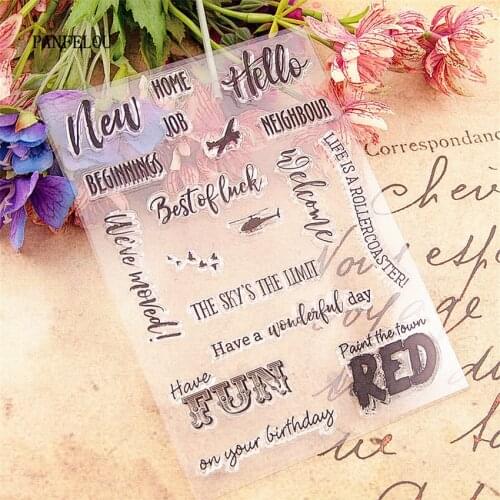 PANFELOU
New
HOME
Hello
JOB
NEIGHBOUR
BEGINNINGS
Best of luck
Welcome
LIFE IS A ROLLERCOASTER!
We've moved!
THE SKY'S THE LIMIT
Have a wonderful day
Have
FUN
on your birthday
Paint the town
RED
Correspondance